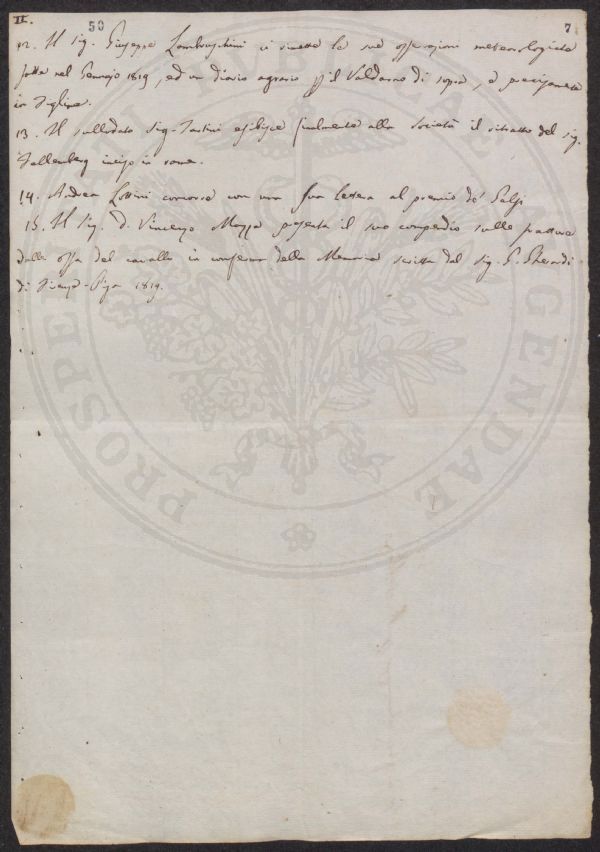 II.
50
7
12. Il Sig. Giuseppe Lambruschini ci rimette le sue osservazioni meteorologiche
fatte nel Gennajo 1819, ed un diario agrario pel Valdarno di sopra, e precisamente
in Figline.
13. Il sullodato Sig. Tartini esibisce finalmente alla Società il ritratto del sig.
Fallenberg inciso in rame.
14. Andrea Lottini concorre con una sua lettera al premio de'
15. Il Sig. D. Vincenzo Mazza presenta il suo compendio sulle fratture
delle ossa del cavallo in conferma della Memoria scritta dal Sig.
di 1819.
PROSPERITATI PUBLICAE AUGENDAE